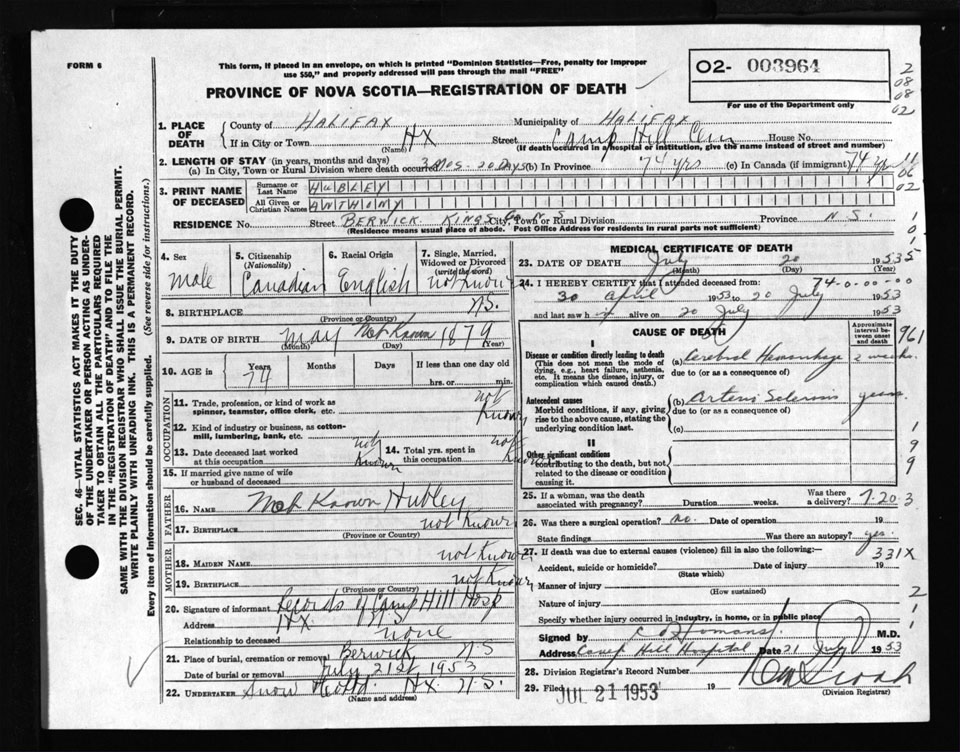 FORM 6
This form, if placed in an envelope, on which is printed "Dominion Statistics—Free, penalty for improper
use $50," and properly addressed will pass through the mail "FREE"
PROVINCE OF NOVA SCOTIA—REGISTRATION OF DEATH
02- 003964
For use of the Department only
2
08
08
02
1. PLACE OF DEATH
County of HALIFAX Municipality of HALIFAX
If in City or Town HX (Name) Street Camp Hill House No.
(If death occurred in a hospital or institution, give the name instead of street and number)
2. LENGTH OF STAY (in years, months and days)
(a) In City, Town or Rural Division where death occurred 3 mos - 20 DAYS (b) In Province 74 yrs (c) In Canada (if immigrant) 74 yr
11
06
02
3. PRINT NAME OF DECEASED
Surname or Last Name HUBLEY
All Given or Christian Names ANTHONY
RESIDENCE No. Street BERWICK KINGS Co N S City, Town or Rural Division Province N.S.
(Residence means usual place of abode. Post Office Address for residents in rural parts not sufficient)
SEC. 46—VITAL STATISTICS ACT MAKES IT THE DUTY
OF THE UNDERTAKER OR PERSON ACTING AS UNDER-
TAKER TO OBTAIN ALL THE PARTICULARS REQUIRED
IN THE "REGISTRATION OF DEATH" AND TO FILE THE
SAME WITH THE DIVISION REGISTRAR WHO SHALL ISSUE THE BURIAL PERMIT.
WRITE PLAINLY WITH UNFADING INK. THIS IS A PERMANENT RECORD.
Every item of information should be carefully supplied. (See reverse side for instructions.)
4. Sex male
5. Citizenship (Nationality) Canadian
6. Racial Origin English
7. Single, Married, Widowed or Divorced (write the word) not know
8. BIRTHPLACE N.S.
(Province or Country)
9. DATE OF BIRTH May (Month) Not Known (Day) 1879 (Year)
10. AGE in Years 74 Months Days If less than one day
hrs. or min.
OCCUPATION
11. Trade, profession, or kind of work as
spinner, teamster, office clerk, etc. not known
12. Kind of industry or business, as cotton-
mill, lumbering, bank, etc.
13. Date deceased last worked
at this occupation not known
14. Total yrs. spent in
this occupation not known
15. If married give name of wife
or husband of deceased
FATHER
16. NAME Not Known Hubley
17. BIRTHPLACE not known
(Province or Country)
MOTHER
18. MAIDEN NAME not know
19. BIRTHPLACE not know
(Province or Country)
20. Signature of informant Records of Camp Hill Hosp
Address HX N S
Relationship to deceased none
21. Place of burial, cremation or removal Berwick N S
Date of burial or removal July 21st 1953
22. UNDERTAKER Snow HX. N.S.
(Name and address)
MEDICAL CERTIFICATE OF DEATH
23. DATE OF DEATH July (Month) 20 (Day) 1953 (Year)
5
24. I HEREBY CERTIFY that I attended deceased from 74-0-00-00
30 April 1953 to 20 July 1953
and last saw h alive on 20 July 1953
1
0
1
CAUSE OF DEATH
Approximate interval between onset and death
961
I
Disease or condition directly leading to death
(This does not mean the mode of
dying, e.g., heart failure, asthenia,
etc. It means the disease, injury, or
complication which caused death.)
(a) Cerebral Hemorrhage 2 weeks
due to (or as a consequence of)
Antecedent causes
Morbid conditions, if any, giving
rise to the above cause, stating the
underlying condition last.
(b) Arterio Sclerosis years
due to (or as a consequence of)
(c)
II
Other significant conditions
contributing to the death, but not
related to the disease or condition
causing it.
1
9
9
25. If a woman, was the death
associated with pregnancy? Duration weeks. Was there a delivery?
7.20.3
26. Was there a surgical operation? no. Date of operation 19
State findings Was there an autopsy? yes.
27. If death was due to external causes (violence) fill in also the following:—
331X
Accident, suicide or homicide? (State which) Date of injury 19
Manner of injury (How sustained)
2
Nature of injury
1
Specify whether injury occurred in industry, in home, or in public place
1
Signed by Homans M.D.
Address Camp Hill Hospital Date 21 July 1953
28. Division Registrar's Record Number
29. Filed JUL 21 1953 19
(Division Registrar)